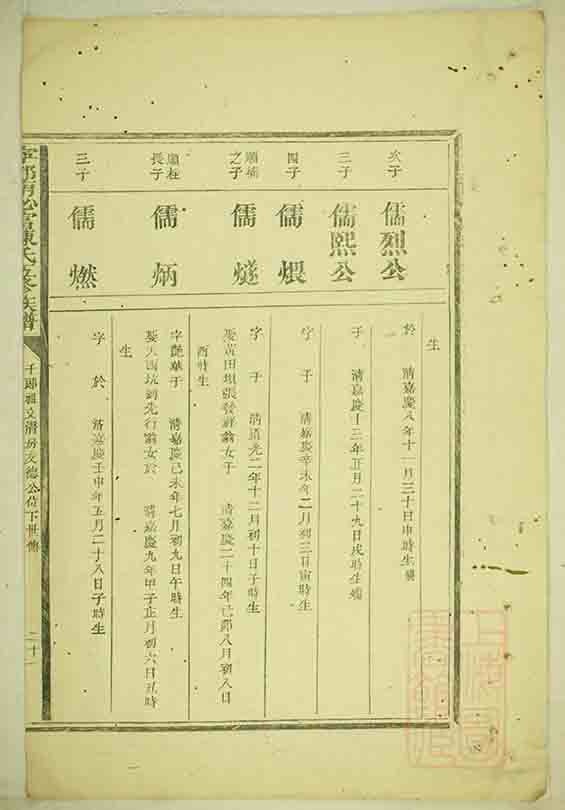 生
次子
儒烈公
於 清嘉慶八年十一月三十日申時生
三子
儒熙公
于 清嘉慶十三年正月二十九日戌時生
四子
儒煨
字 于 清嘉慶辛未年二月初三日寅時生
之子
儒燧
字 于 清道光二年十二月初十日子時生
娶黃田垻張發祥翁女于 清嘉慶二十四年己卯八月初八日
酉時生
長子
儒炳
字艷華于 清嘉慶己未年七月初九日午時生
娶大西坑劉先行翁女於 清嘉慶九年甲子正月初六日丑時
生
三子
儒燃
字 於 清嘉慶壬申年五月二十八日子時生
陳氏五修族譜
千郎祖文清房友德公位下世傳
二十一